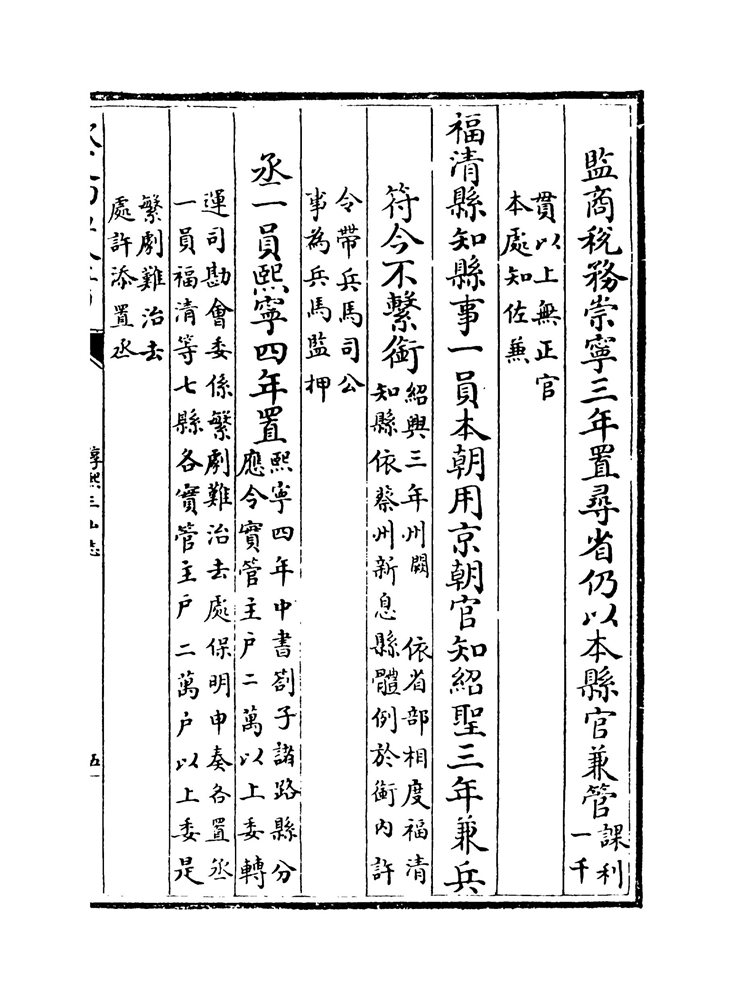 監商稅務崇寧三年置尋省仍以本縣官兼管課利
一千
貫以上無正官
本處知佐兼
福清縣知縣事一員本朝用京朝官知紹聖三年兼兵
符今不繫銜紹興三年州闕 依省部相度福清
知縣依蔡州新息縣體例於銜內許
令帶兵馬司公
事為兵馬監押
丞一員熙寧四年置熙寧四年中書劄子諸路縣分
應今實管主戶二萬以上委轉
運司勘會委係繁劇難治去處保明申奏各置丞
一員福清等七縣各實管主戶二萬戶以上委是
繁劇難治去
處許添置丞
淳熙三山志
五